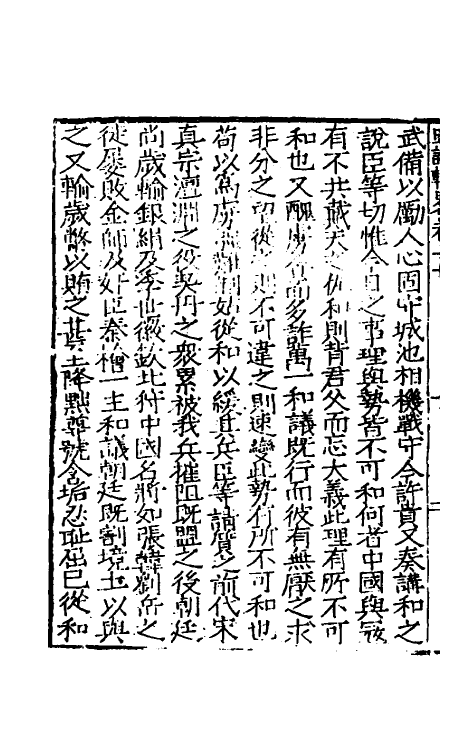 武備以勵人心固城池也相機戰守今許貴又奏講和之
說臣等切惟今日之事理與勢皆不可和何者中國與寇
有不共戴天之仇和則背君父而忘大義此理有所不可
和也又醜虜貪而多詐萬一和議既行而彼有無厭之求
非分之望從之則不可違之則速變此勢有所不可和也
苟以為虜難制姑從和以緩其兵臣等請質之前代宋
真宗澶淵之役契丹之眾累被我兵摧阻既盟之後朝廷
尚歲輸銀絹及季世徽欽北狩中國名將如張韓劉岳之
徒屢敗金師及奸臣秦檜一主和議朝廷既割境土以與
之又輸歲幣以賄之甚至降黜尊號含垢忍恥屈己從和